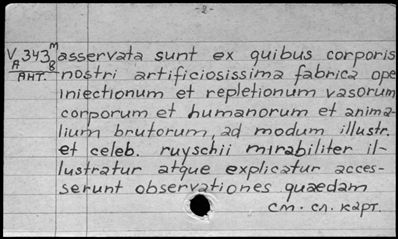 -2-
VA 343 m/8 asservata sunt ex quibus corporis
АНТ. nostri artificiosissima fabrica ope
iniectionum et repletionum vasorum
corporum et humanorum et anima-
lium brutorum, ad modum illustr.
et celeb. ruyschii mirabiliter il-
lustratur atque explicatur acces-
serunt observationes quaedam
см. сл. карт.